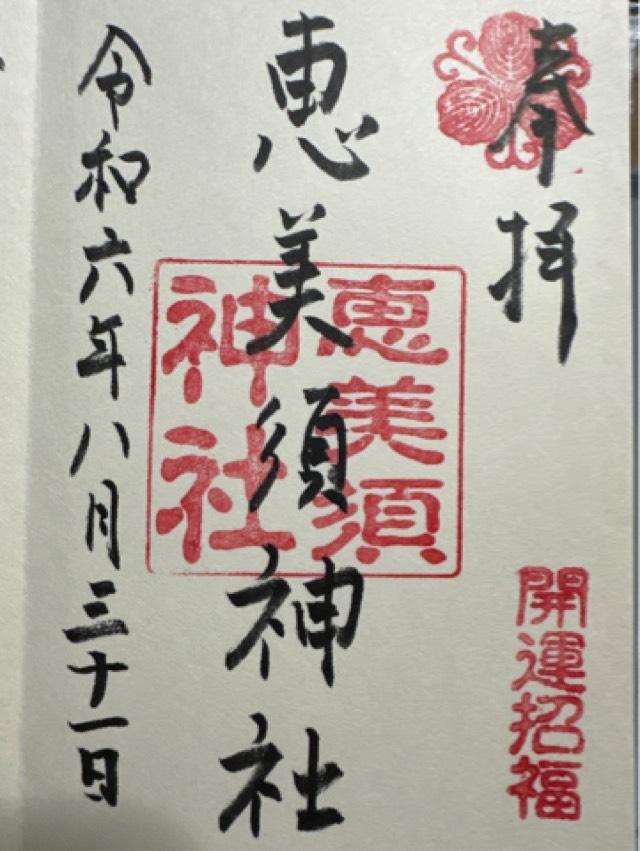 奉拝
開運招福
恵美須神社
恵美須
神社
令和六年八月三十一日